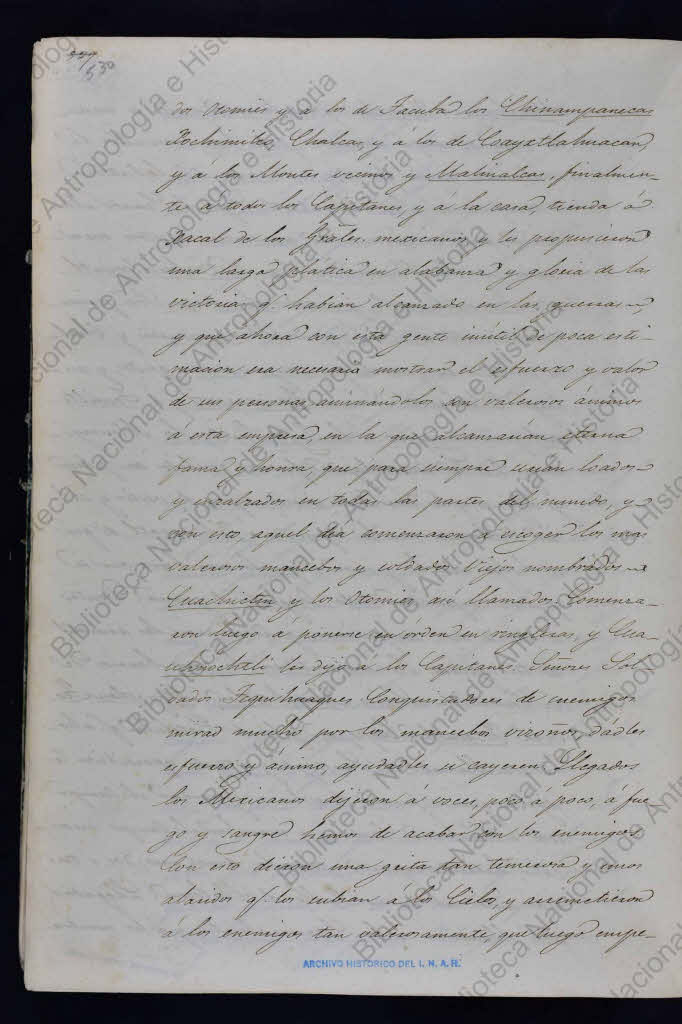 530
dos Otomies y á los de Tacuba los Chinampanecas
Xochimilco, Chalcas, y á los de Coayxtlahuacan,
y á los Montes vecinos y Malinalcas, finalmen-
te á todos los Capitanes, y á la casa, tienda ó
Xacal de los Grâles. mexicanos, y les propusieron
una larga plática en alabanza y gloria de las
victorias q.e habian alcanzado en las guerras,
y que ahora con esta gente inútil de poca esti-
macion era necesario mostrar el esfuerzo y valor
de sus personas, animándolos con valerosos ánimos
á esta empresa, en la que alcanzarian eterna
fama y honra, que para siempre serían loados
y ensalzados en todas las partes del mundo, y
con esto, aquel dia comenzaron á escoger los mas
valerosos mancebos y soldados viejos nombrados
Cuachictin, y los Otomies, así llamados. Comenza-
ron luego á ponerse en órden en ringleras, y Cua-
uhnochtli les dijo á los Capitanes. Señores Sol
dados Tequihuaques Conquistadores de enemigos
mirad mucho por los mancebos visoños, dádles
esfuerzo y ánimo, ayudadles si cayeren. Llegados
los Mexicanos dijeron á voces, poco á poco, á fue-
go y sangre hemos de acabar con los enemigos.
Con esto dieron una grita tan temerosa y unos
alaridos q.e los subian á los Cielos, y arremetieron
á los enemigos tan valerosamente, que luego empe-
ARCHIVO HISTORICO DEL I. N. A. H.
Biblioteca Nacional de Antropología e Historia